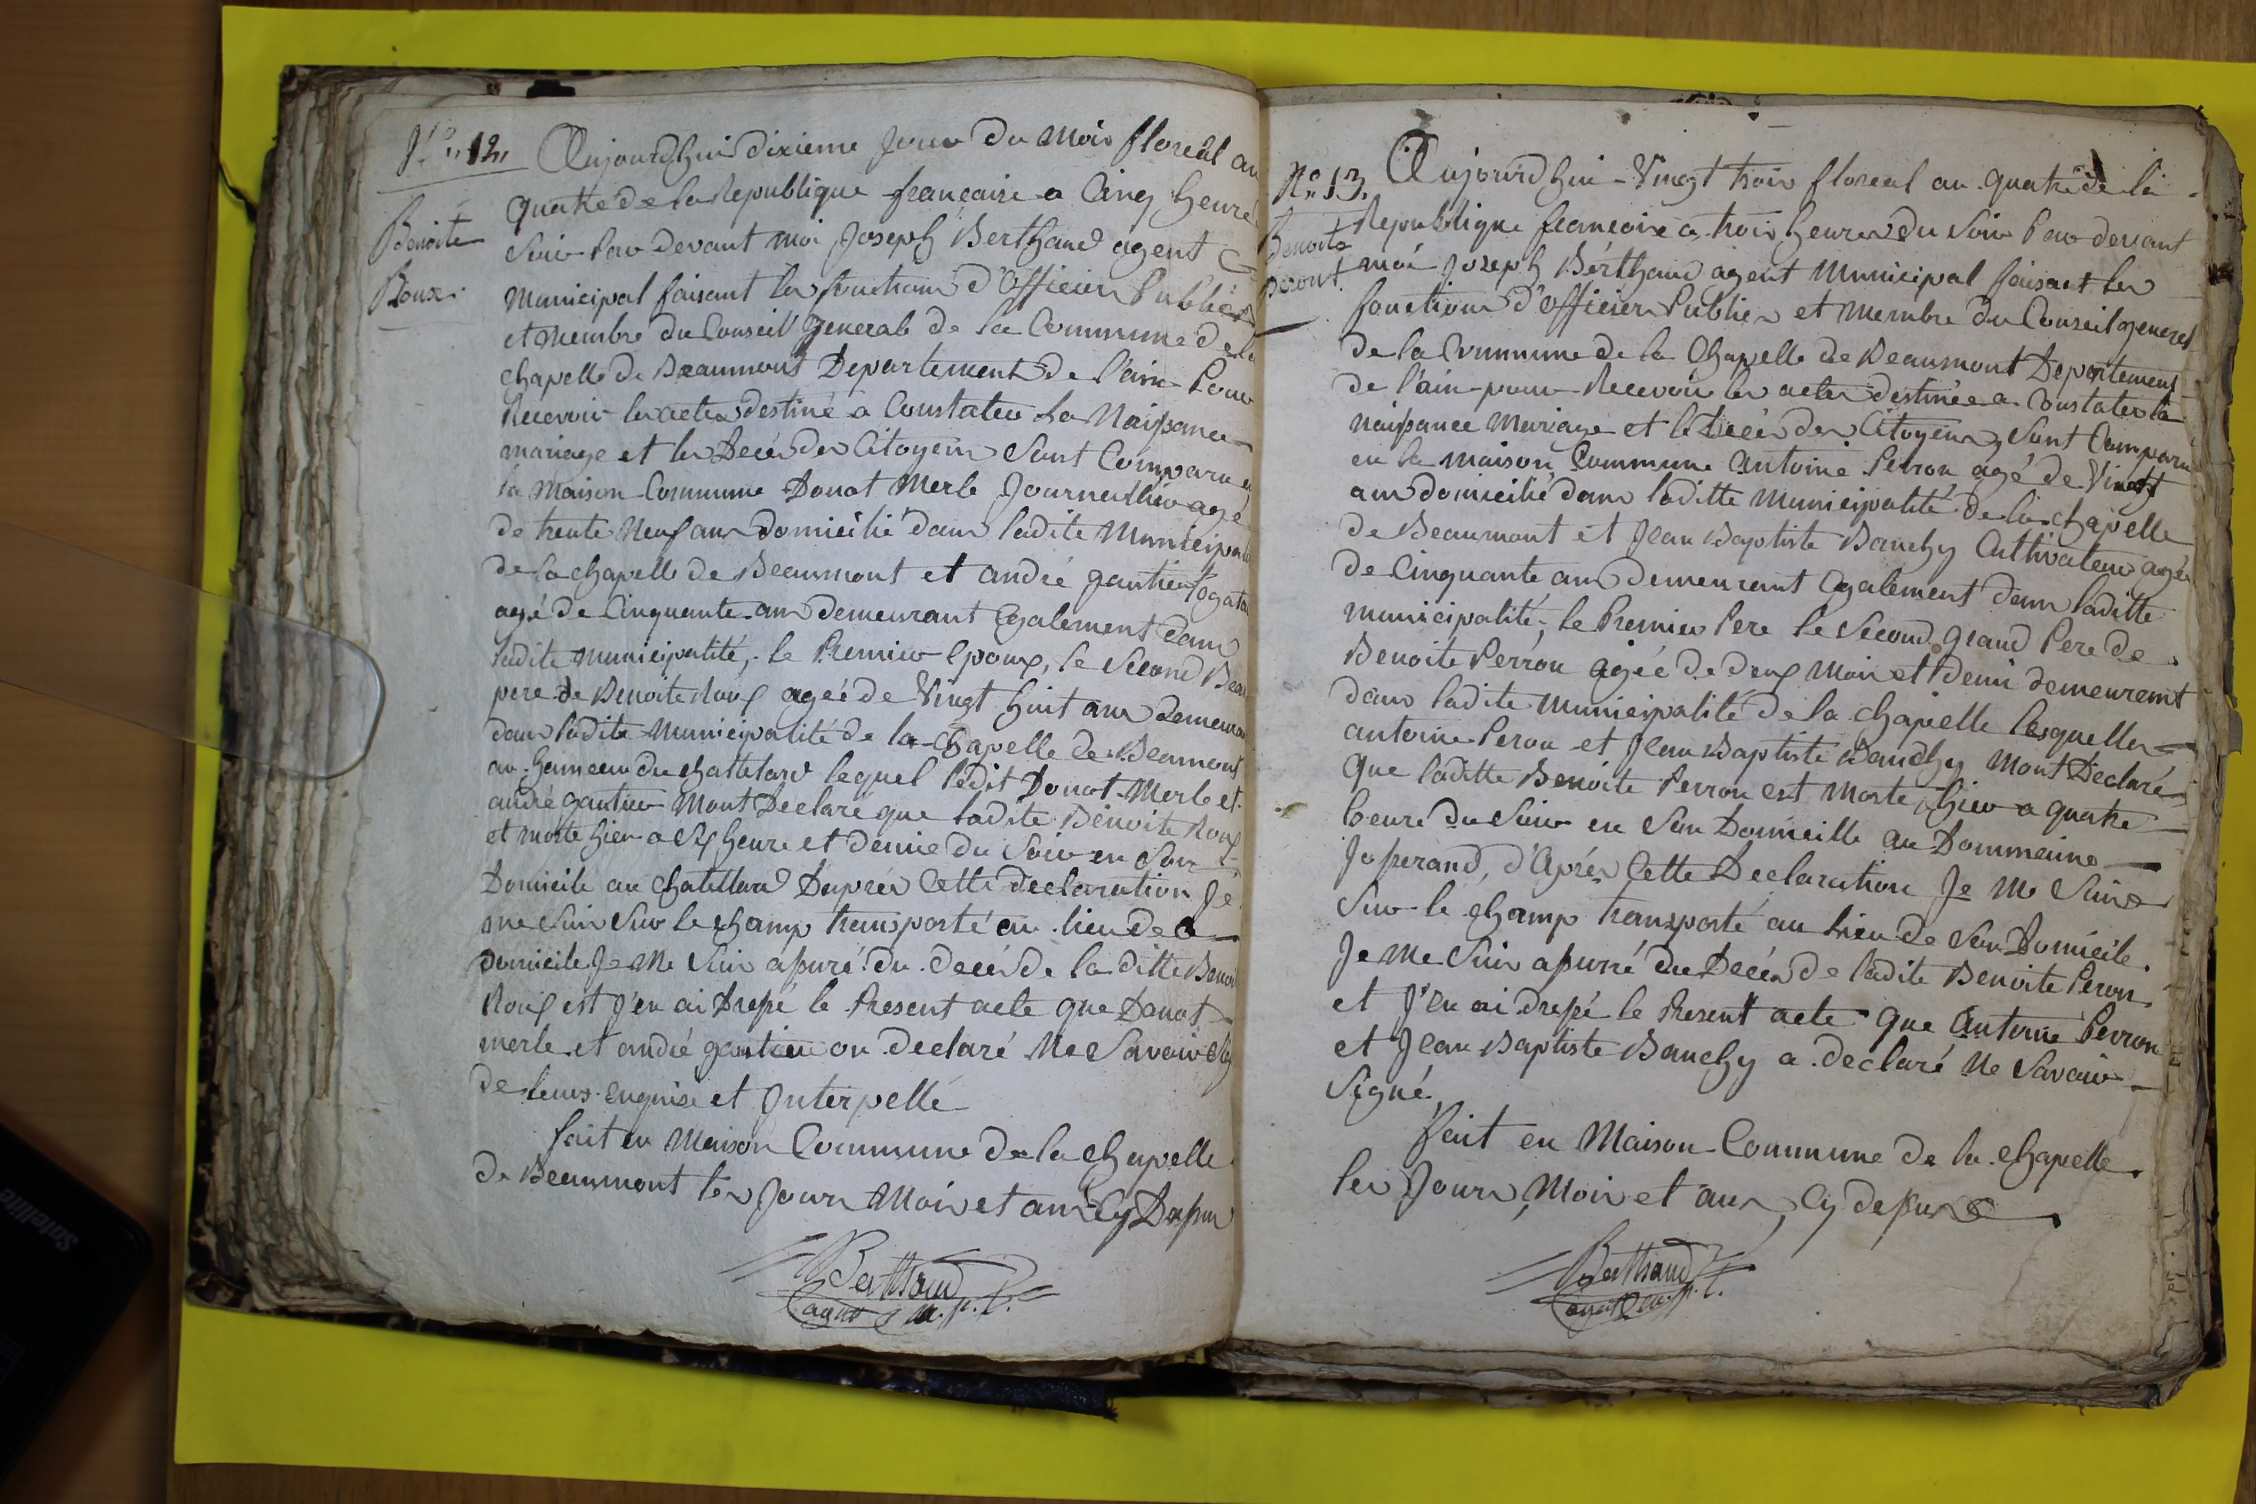 No. 12.
Benoite
Roux.
Aujourdhui dixieme Jour du Mois floreal an
quatre de la Republique francaise a Cinq heure
Soir Par devant moi Joseph Berthaud agent
Municipal faisant les fonctions d'Officier Public
et Membre du Conseil General de la Commune de la
chapelle de Beaumont Departement de l'ain Pour
Recevoir les actes destiné a Constater La Naissance
mariage et les Decés des Citoyens Sont Comparu en
la Maison Commune Donat Merle Journallier agé
de trente Neuf ans domicilié dans ladite Municipali
de la chapelle de Beaumont et andré gautier
agé de Cinquante ans demeurant Egalement dans
ladite municipalité, le Premier Epoux, le Second Beau
pere de Benoite Roux agée de Vingt huit ans demeuran
dans ladite Municipalité de la Chapelle de Beamont
au hameau du chattelard lequel ledit Donat Merle et
andré gautier Mont Declaré que ladite Benoite Roux
et morte hier a Six heure et demie du Soir en Son
Domicile au Chatellard Daprés Cette declaration Je
me Suis Sur le Champ transporté au lieu de
Domicile Je Me Suis assuré du decés de la ditte Benoit
Roux est J'en ai Dressé le Present acte que Donat
merle et andré gautier on declaré Ne Savoir Sig
de leurs enquise et Interpellé
fait en Maison Commune de la Chapelle
de Beaumont les Jours Mois et an Cy Dessus
Berthaud
agent m.p.l.
No. 13.
Benoite
Peront.
Aujourdhui Vingt trois floreal an quatre de la
Republique francaise a trois heures du Soir Par devant
moi Joseph Berthaud agent Municipal faisant les
fonctions d'Officier Public et Membre du Conseil general
de la Commune de la Chapelle de Beaumont Departement
de l'ain pour Recevoir les actes destinée a Constater la
Naissance Mariage et le Decés des Citoyens, Sont Comparu
en la maison Commune antoine Perron agé de Vingt
ans domicilié dans laditte Municipalité de la chapelle
de Beaumont et Jean Baptiste Bauchy Cultivateur agée
de Cinquante ans demeurant Egalement dans laditte
municipalité, le Premier Pere le Second grand Pere de
Benoite Perron agée de deux Mois et Demi demeurent
dans ladite Municipalité de la chapelle lesquelles
antoine Peron et Jean Baptiste Bauchy Mont Declaré
que laditte Benoite Perron est Morte hier a quatre
heure du Soir en Son Domicille au Dommaine
Josserand, d'Aprés Cette Declaration Je Me Suis
Sur le champ transporté au Lieu de Son Domicile.
Je Me Suis assuré du Decés de ladite Benoite Peron
et J'en ai dressé le Present acte que Antoine Perron
et Jean Baptiste Bauchy a declaré Ne Savoir
Signé
fait en Maison Commune de la Chapelle
les Jours, Mois et ans, Cy dessus
Berthaud
agent m.p.l.